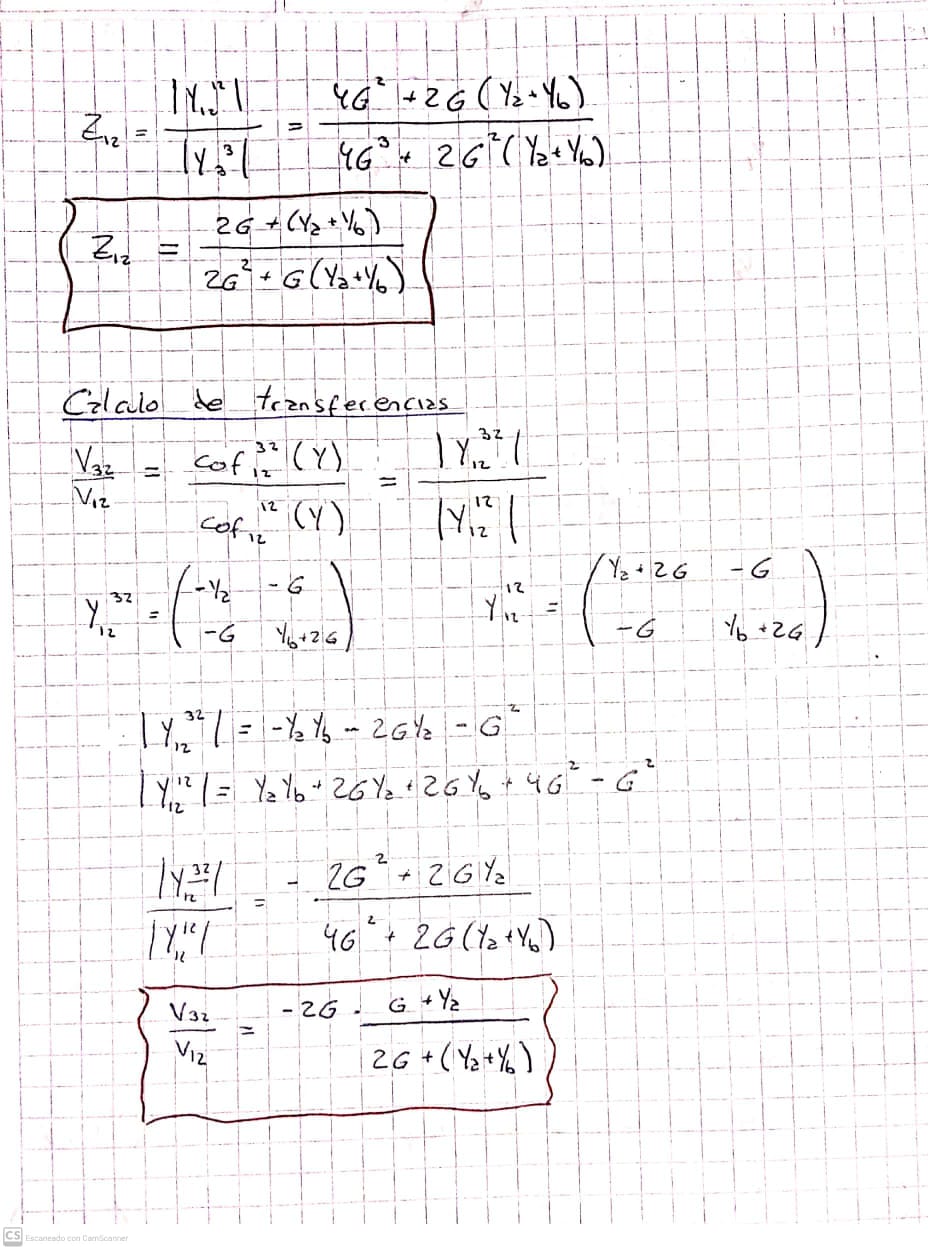 Z₁₂ = |Y₁₂¹²| / |Y₃³| = (4G² + 2G (Ya + Yb)) / (4G³ + 2G² (Ya + Yb))
Z₁₂ = (2G + (Ya + Yb)) / (2G² + G (Ya + Yb))
Cálculo de transferencias
V₃₂ / V₁₂ = cof₁₂³² (Y) / cof₁₂¹² (Y) = |Y₁₂³²| / |Y₁₂¹²|
Y₁₂³² = ( -Ya  -G ; -G  Yb + 2G )  Y₁₂¹² = ( Ya + 2G  -G ; -G  Yb + 2G )
|Y₁₂³²| = -Ya Yb - 2G Ya - G²
|Y₁₂¹²| = Ya Yb + 2G Ya + 2G Yb + 4G² - G²
|Y₁₂³²| / |Y₁₂¹²| = - (2G² + 2G Ya) / (4G² + 2G (Ya + Yb))
V₃₂ / V₁₂ = -2G . (G + Ya) / (2G + (Ya + Yb))
CS Escaneado con CamScanner